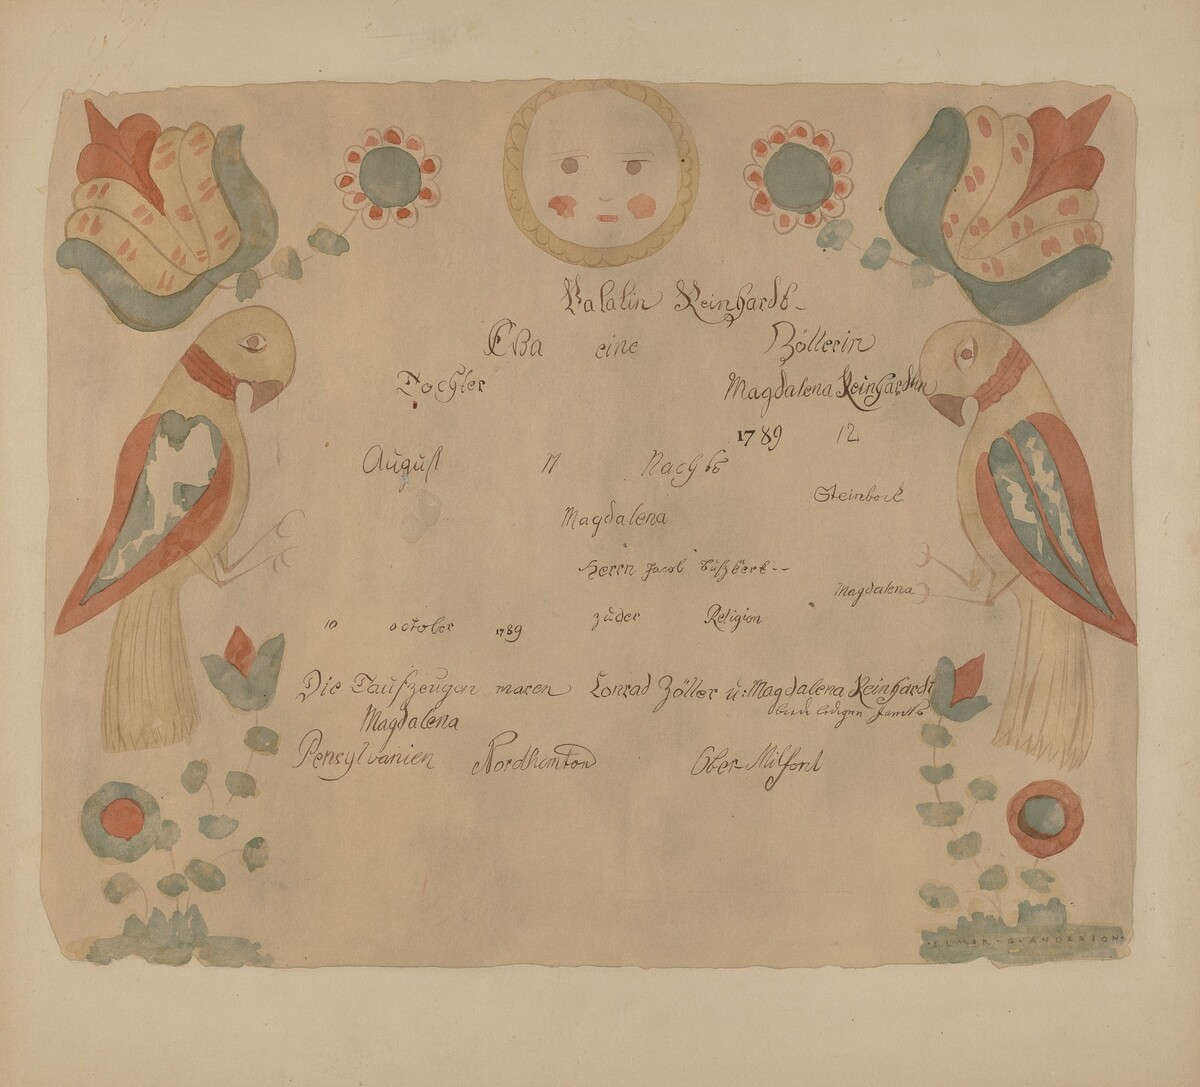 Valatin Reinhardt
Eva eine Zöllerin
Tochter Magdalena Reinhardtin
1789 12
August 11 Nachts
Steinbock
Magdalena
Herrn Jacob
Magdalena
10 october 1789 zuder Religion
Die Taufzeugen waren Conrad Zöller u: Magdalena Reinhardt
Magdalena
Pensylvanien Nordhamton Ober-Milford
ELMER G. ANDERSON